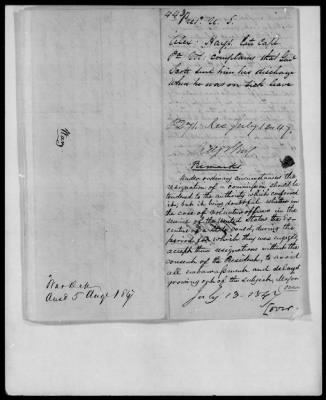 Prest U. S.
Alex. Hays. late Capt
Pa. Vol. complains that Genl
Scott sent him his discharge
when he was on sick leave
Rec July 12. 47.
Remarks
Under ordinary circumstances the
resignation of a commission should be
tendered to the authority which conferred
it, but it being doubtful whether in
the case of volunteer officers in the
service of the United States the
could, during the
period for which they were engaged,
accept their resignations without the
consent of the President, to avoid
all embarrassment and delays
growing out of the subject, Major
over
July 13. 1847
(over.
Hays
War Dep.
Ansd 5 Augt 1847